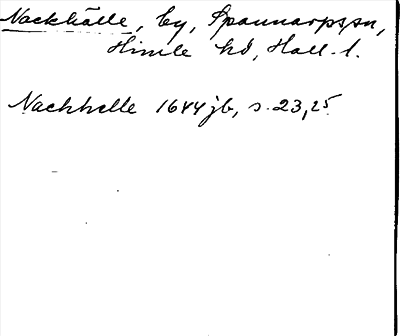 Nackhälle, by, Spannarps sn,
Himle hd, Hall. l.
Nackhelle 1644 jb, s. 23, 25